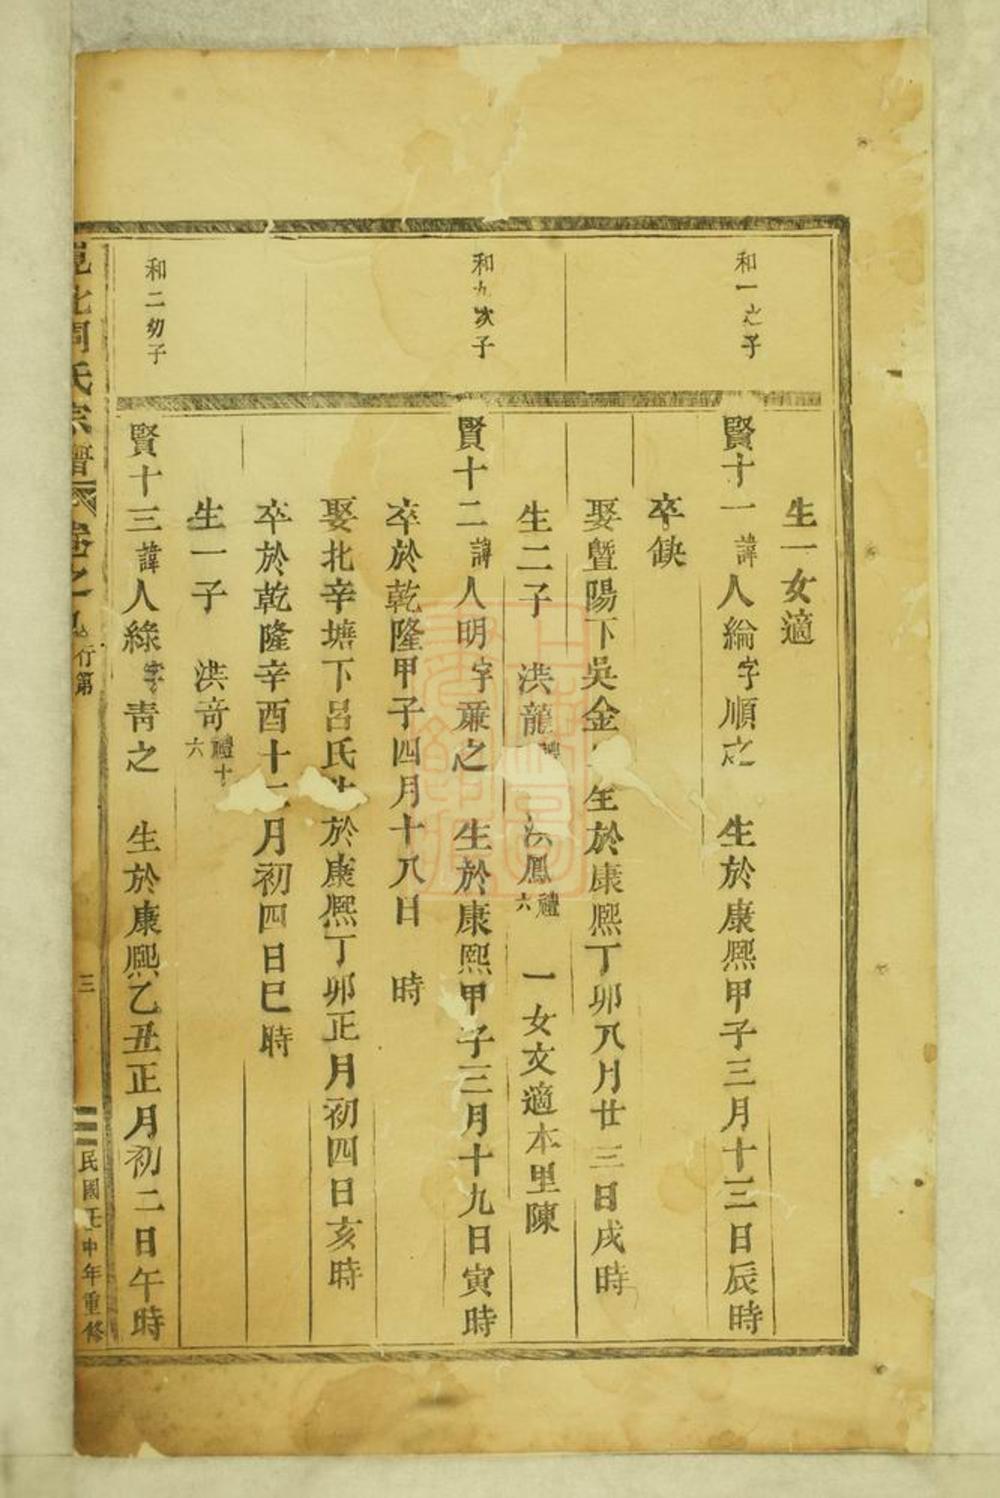 生一女適
和一之子
賢十一諱人綸字順之 生於康熙甲子三月十三日辰時
卒缺
娶暨陽下吳金 生於康熙丁卯八月廿三日戌時
生二子 洪龍禮 洪鳳禮六 一女文適本里陳
和九次子
賢十二諱人明字蕭之 生於康熙甲子三月十九日寅時
卒於乾隆甲子四月十八日 時
娶北辛塘下呂氏生於康熙丁卯正月初四日亥時
卒於乾隆辛酉十二月初四日巳時
生一子 洪奇禮十六
和二幼子
賢十三諱人綠字靑之 生於康熙乙丑正月初二日午時
北周氏宗譜 卷之 行第 三 民國壬申年重修